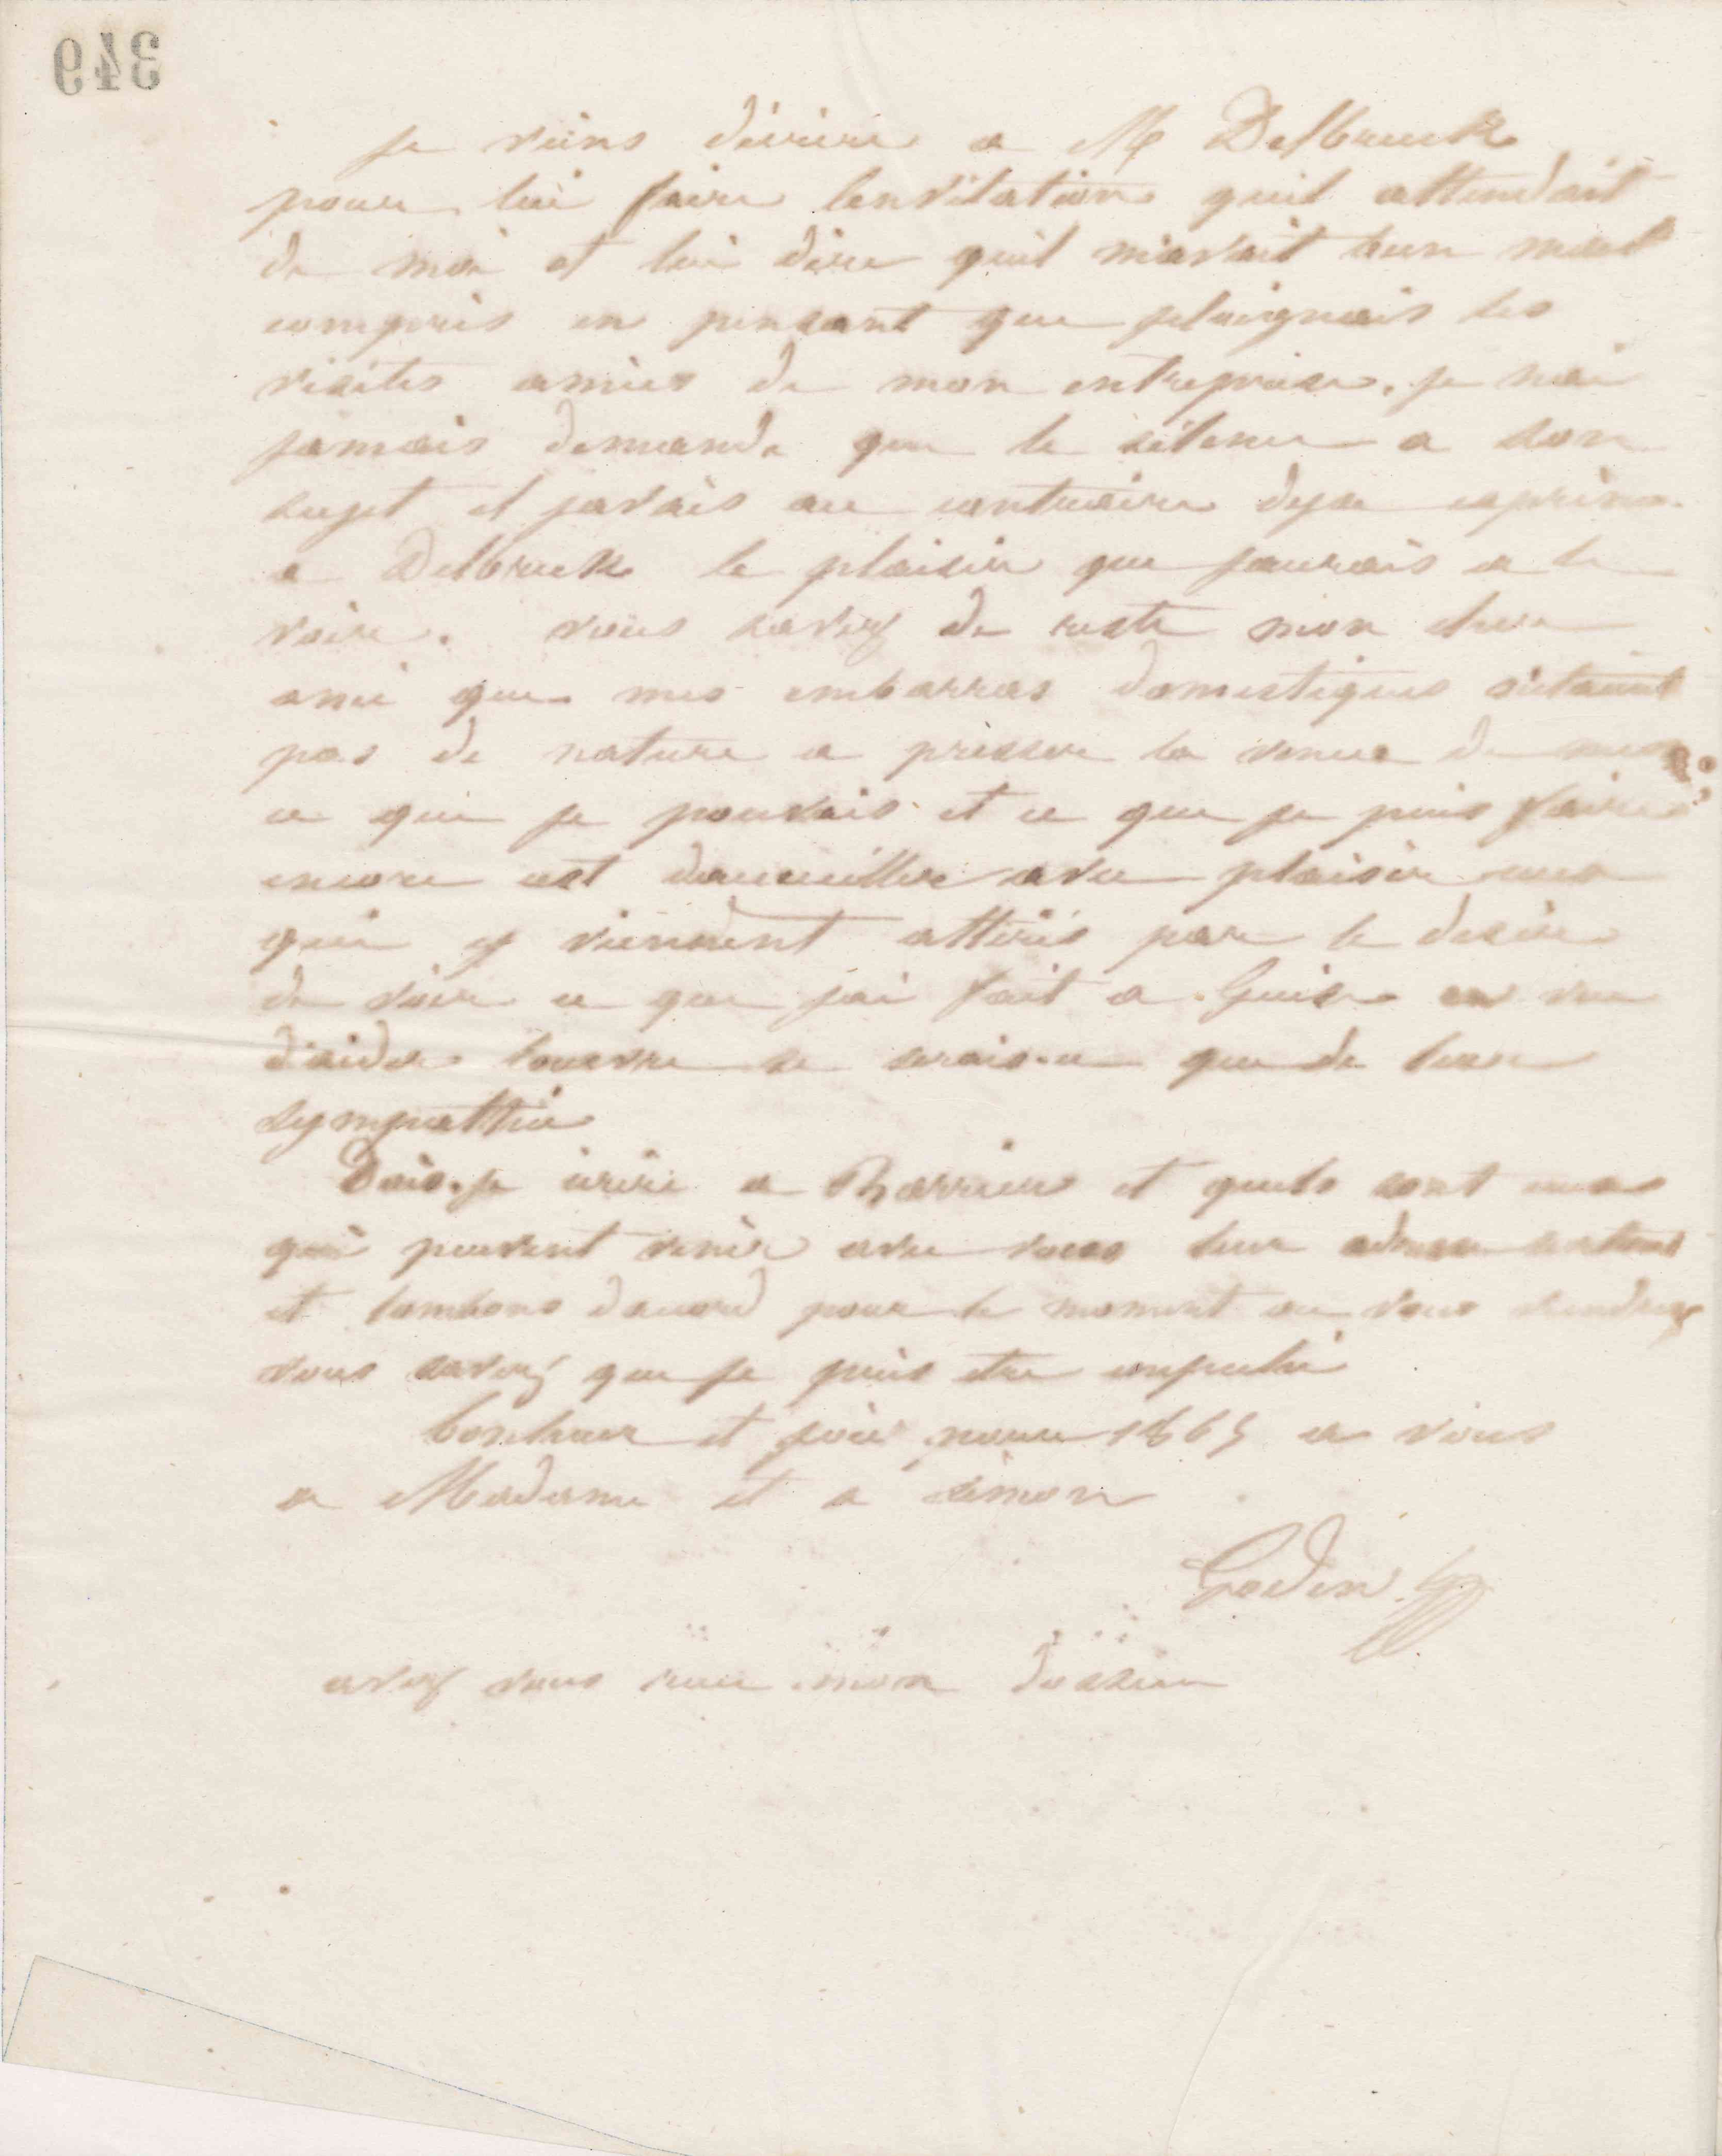 349
je viens décrire a M Delbruck
pour lui faire lenvitation quil attendait
de moi et lui dire quil m'avait bien mal
compris en pensant que jeloignais les
visites amies de mon entreprise. je nai
jamais demandé que le silence a son
sujet et javais au contraire deja exprimé
a Delbruck le plaisir que jaurais a le
voire. vous savez de reste mon cher
ami que mes embarras domestiques nétaient
pas de nature a presser la venue de
ce que je pouvais et ce que je puis faire
encore est daccueillir avec plaisir ceux
qui y viennent attirés par le desir
de voir ce que jai fait a Guise en vue
d'aider louvre ne serais-ce que de leur
sympathie
Dois-je écrire a Barrier et quels sont ceux
qui peuvent venir avec vous leur adresse
et tombons daccord pour le moment ou vous viendrez
vous savez que je puis etre empeché
bonheur et joie pour 1865 a vous
a Madame et a simon
Godin
avez vous reçu mon dossier